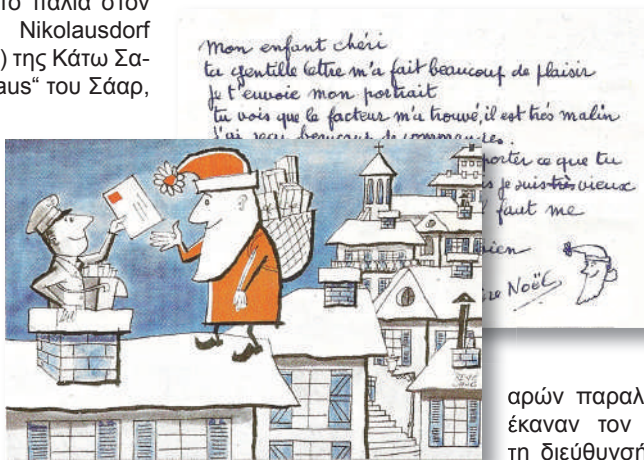 το παλιά στον
Nikolausdorf
) της Κάτω Σα-
aus“ του Σάαρ,
Mon enfant chéri
ta gentille lettre m'a fait beaucoup de plaisir
Je t'envoie mon portrait
tu vois que le facteur m'a trouvé, il est très malin
J'ai reçu beaucoup de commandes.
porter ce que tu
s je suis très vieux
faut me
bien
ère Noël
αρών παραλ
έκαναν τον
τη διεύθυνσή